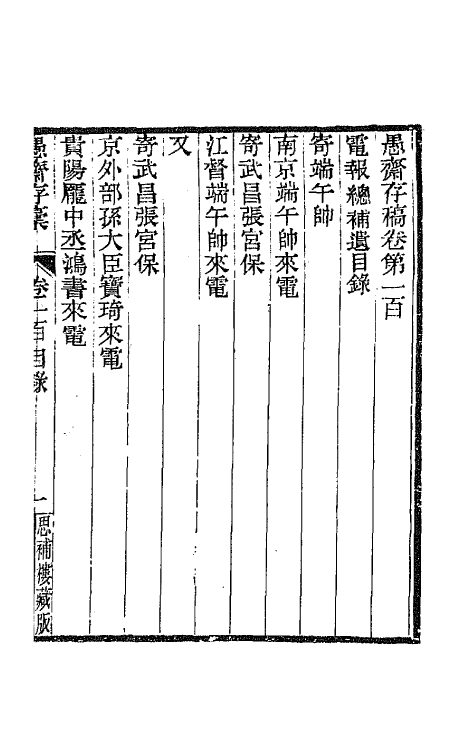 愚齋存稿卷第一百
電報總補遺目錄
寄端午帥
南京端午帥來電
寄武昌張宮保
江督端午帥來電
又
寄武昌張宮保
京外部孫大臣寶琦來電
貴陽龐中丞鴻書來電
愚齋存稾 卷一百目錄 一 思補樓藏版